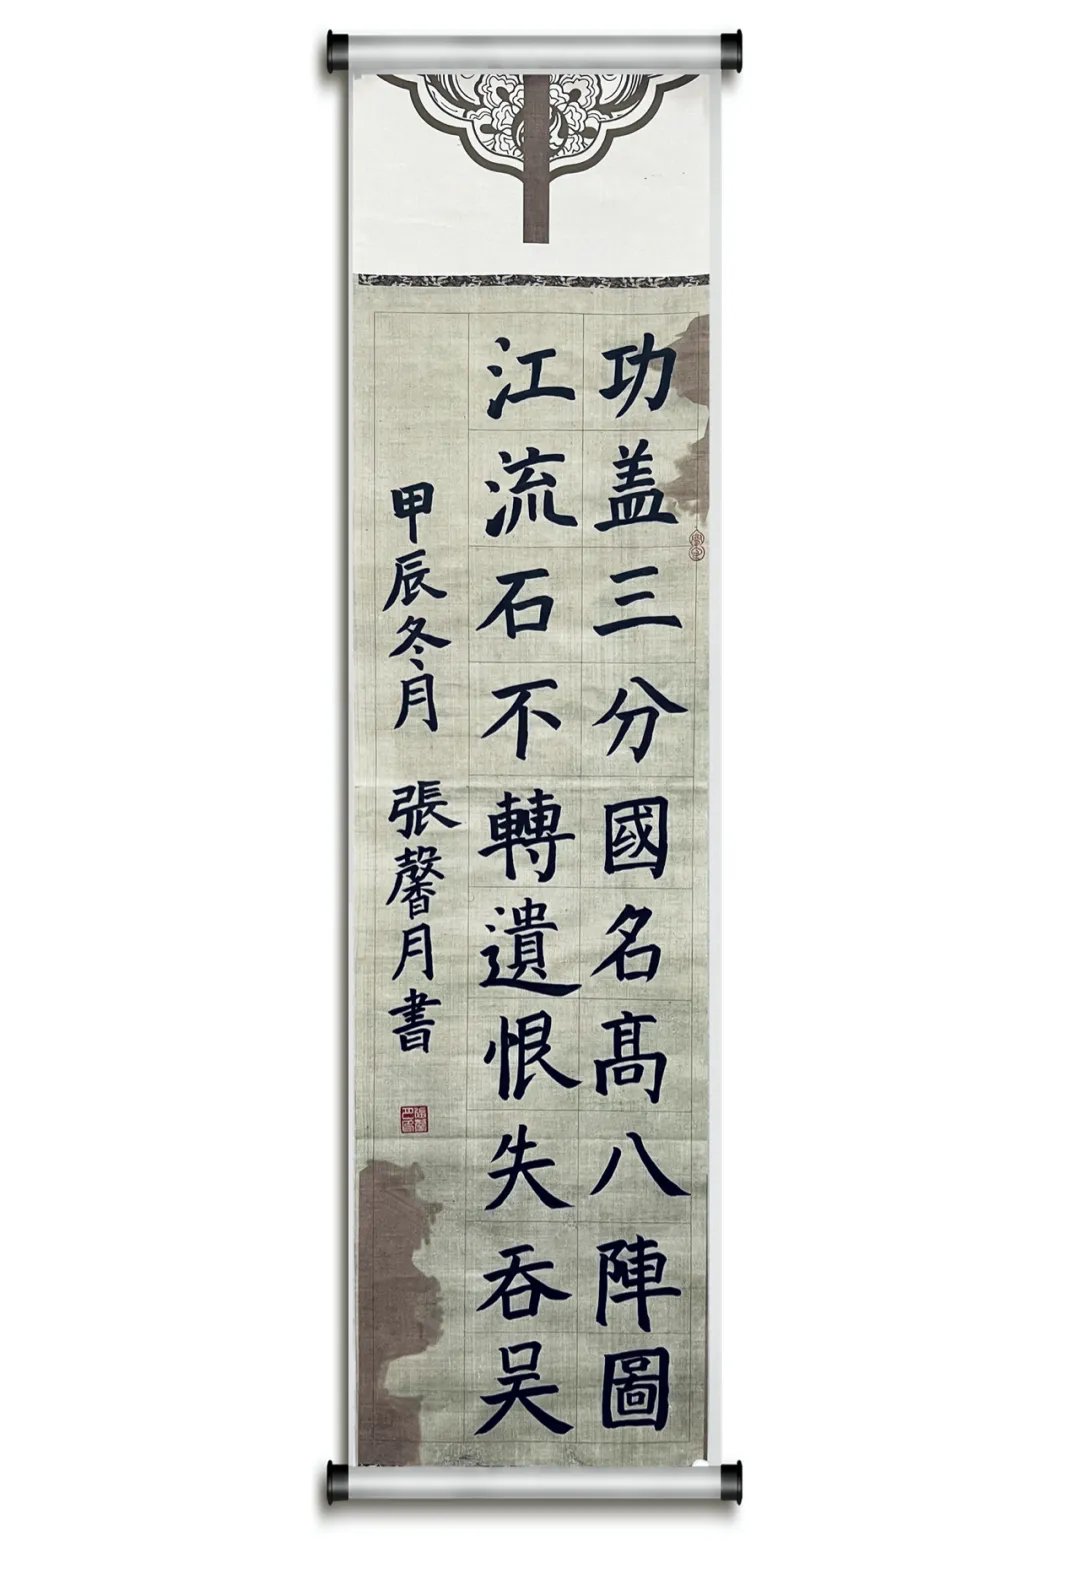 功盖三分國名髙八陣圖
江流石不轉遺恨失吞吴
甲辰冬月 張馨月書